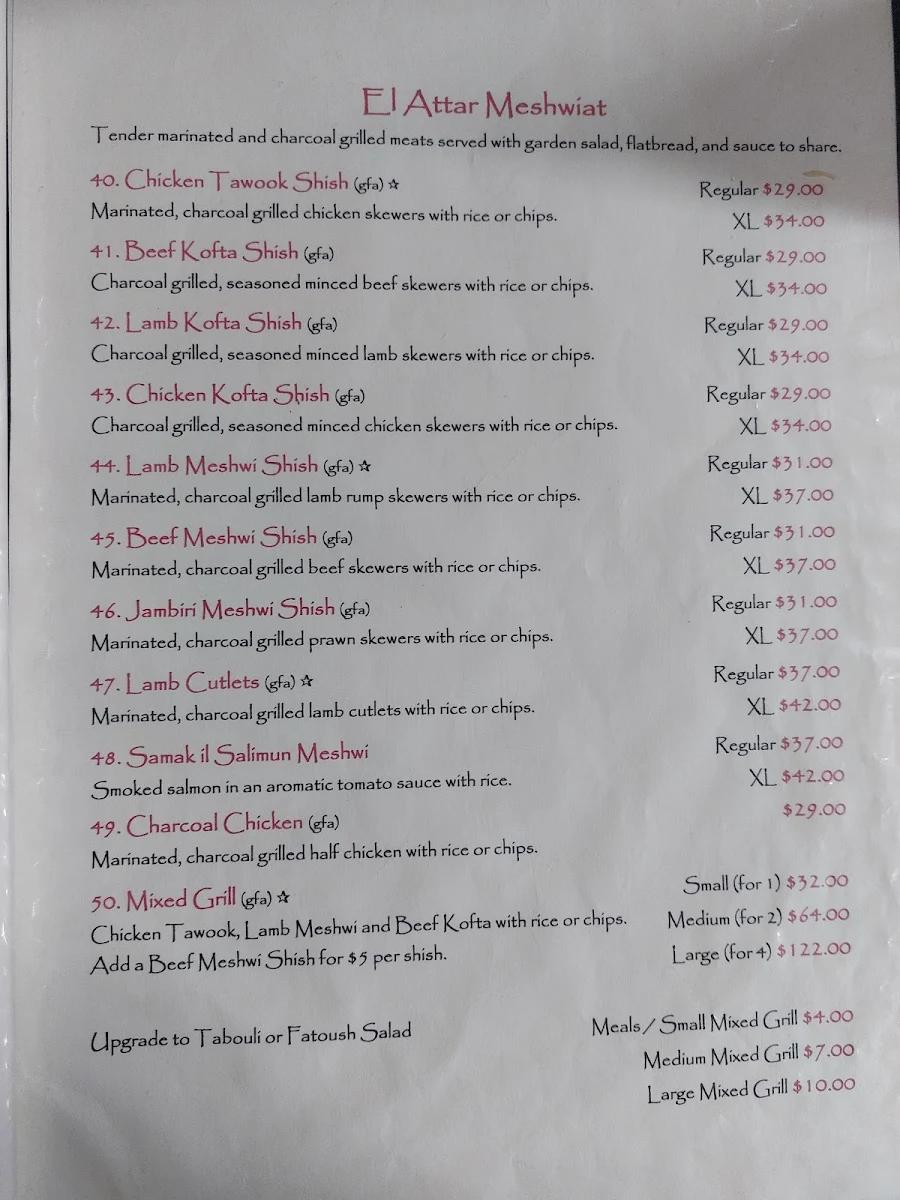 El Attar Meshwiat
Tender marinated and charcoal grilled meats served with garden salad, flatbread, and sauce to share.
40. Chicken Tawook Shish (gfa) ☆ Regular $29.00
Marinated, charcoal grilled chicken skewers with rice or chips. XL $34.00
41. Beef Kofta Shish (gfa) Regular $29.00
Charcoal grilled, seasoned minced beef skewers with rice or chips. XL $34.00
42. Lamb Kofta Shish (gfa) Regular $29.00
Charcoal grilled, seasoned minced lamb skewers with rice or chips. XL $34.00
43. Chicken Kofta Shish (gfa) Regular $29.00
Charcoal grilled, seasoned minced chicken skewers with rice or chips. XL $34.00
44. Lamb Meshwi Shish (gfa) ☆ Regular $31.00
Marinated, charcoal grilled lamb rump skewers with rice or chips. XL $37.00
45. Beef Meshwi Shish (gfa) Regular $31.00
Marinated, charcoal grilled beef skewers with rice or chips. XL $37.00
46. Jambiri Meshwi Shish (gfa) Regular $31.00
Marinated, charcoal grilled prawn skewers with rice or chips. XL $37.00
47. Lamb Cutlets (gfa) ☆ Regular $37.00
Marinated, charcoal grilled lamb cutlets with rice or chips. XL $42.00
48. Samak il Salimun Meshwi Regular $37.00
Smoked salmon in an aromatic tomato sauce with rice. XL $42.00
49. Charcoal Chicken (gfa) $29.00
Marinated, charcoal grilled half chicken with rice or chips.
50. Mixed Grill (gfa) ☆ Small (for 1) $32.00
Chicken Tawook, Lamb Meshwi and Beef Kofta with rice or chips. Medium (for 2) $64.00
Add a Beef Meshwi Shish for $5 per shish. Large (for 4) $122.00
Upgrade to Tabouli or Fatoush Salad Meals / Small Mixed Grill $4.00
Medium Mixed Grill $7.00
Large Mixed Grill $10.00